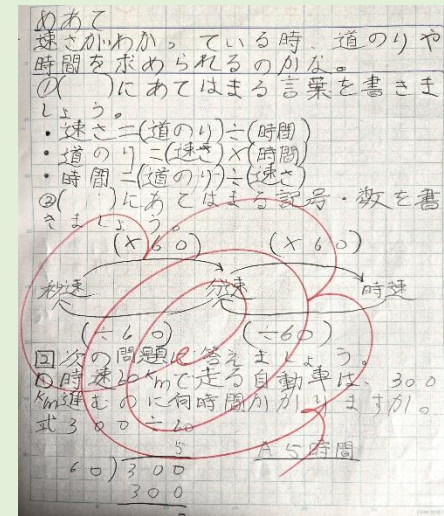 めあて
速さがわかっている時、道のりや
時間を求められるのかな。
①( )にあてはまる言葉を書きま
しょう。
・速さ=(道のり)÷(時間)
・道のり=(速さ)×(時間)
・時間=(道のり)÷(速さ)
②( )にあてはまる記号・数を書
きましょう。
(×60) (×60)
秒速 分速 時速
(÷60) (÷60)
回次の問題に答えましょう。
①時速60kmで走る自動車は、300
km進むのに何時間かかりますか。
式300÷60
5 A5時間
60)300
300